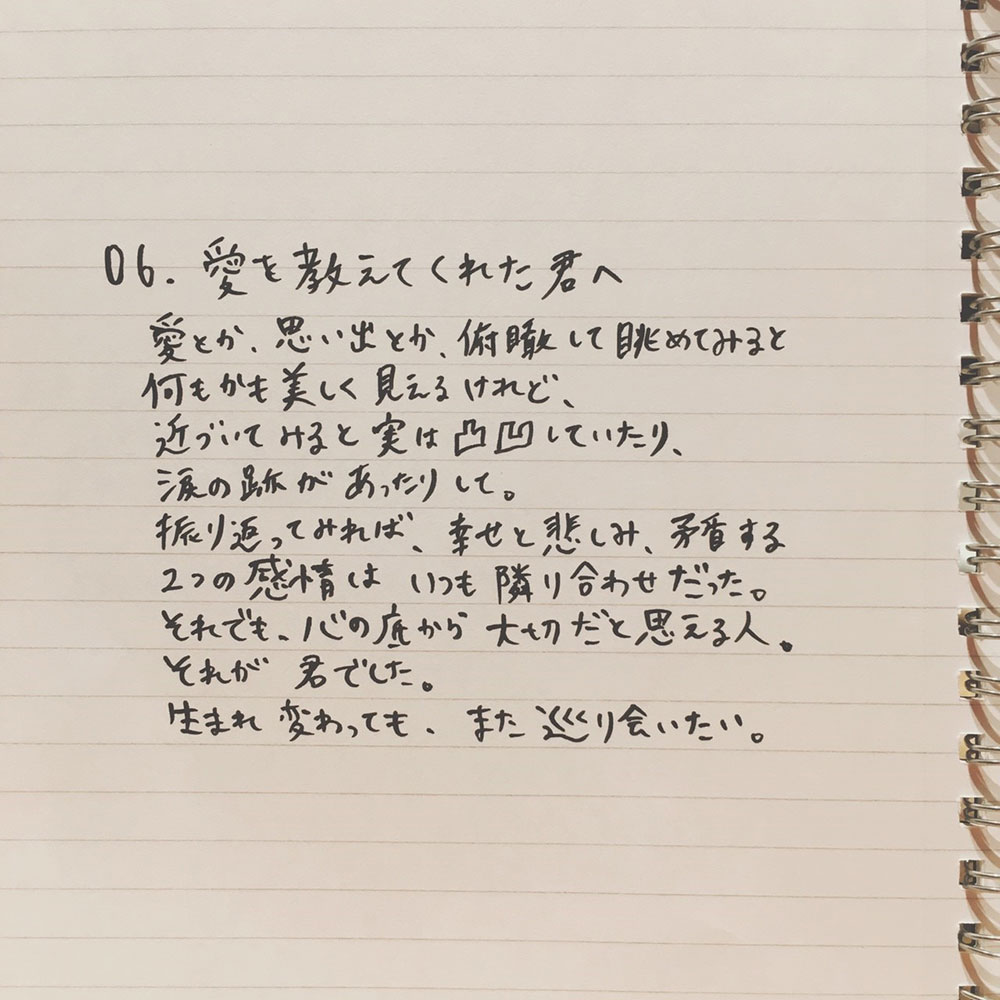 06. 愛を教えてくれた君へ
愛とか、思い出とか、俯瞰して眺めてみると
何もかも美しく見えるけれど、
近づいてみると実は凸凹していたり、
涙の跡があったりして。
振り返ってみれば、幸せと悲しみ、矛盾する
2つの感情はいつも隣り合わせだった。
それでも、心の底から大切だと思える人。
それが君でした。
生まれ変わっても、また巡り会いたい。